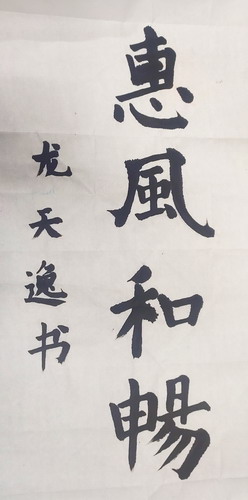 惠風和暢
龙天逸书